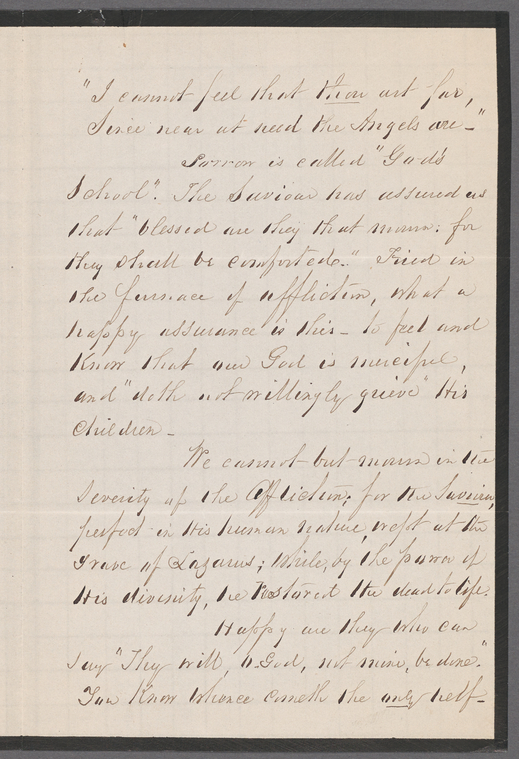 "I cannot feel that thou art far,
Since near at need the Angels are—"
Sorrow is called "God's
School". The Saviour has assured us
that "blessed are they that mourn: for
they shall be comforted." Tried in
the furnace of affliction, what a
happy assurance is this— to feel and
know that our God is merciful,
and "doth not willingly grieve" His
children—
We cannot but mourn in the
severity of the affliction; for the Saviour,
perfect in His human nature, wept at the
grave of Lazarus; While, by the power of
His divinity, he restored the dead to life.
Happy are they who can
say "Thy will, O God, not mine, be done."
You know whence cometh the only help—